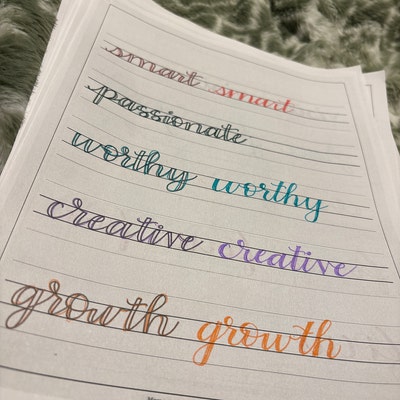 smart smart
passionate
worthy worthy
creative creative
growth growth